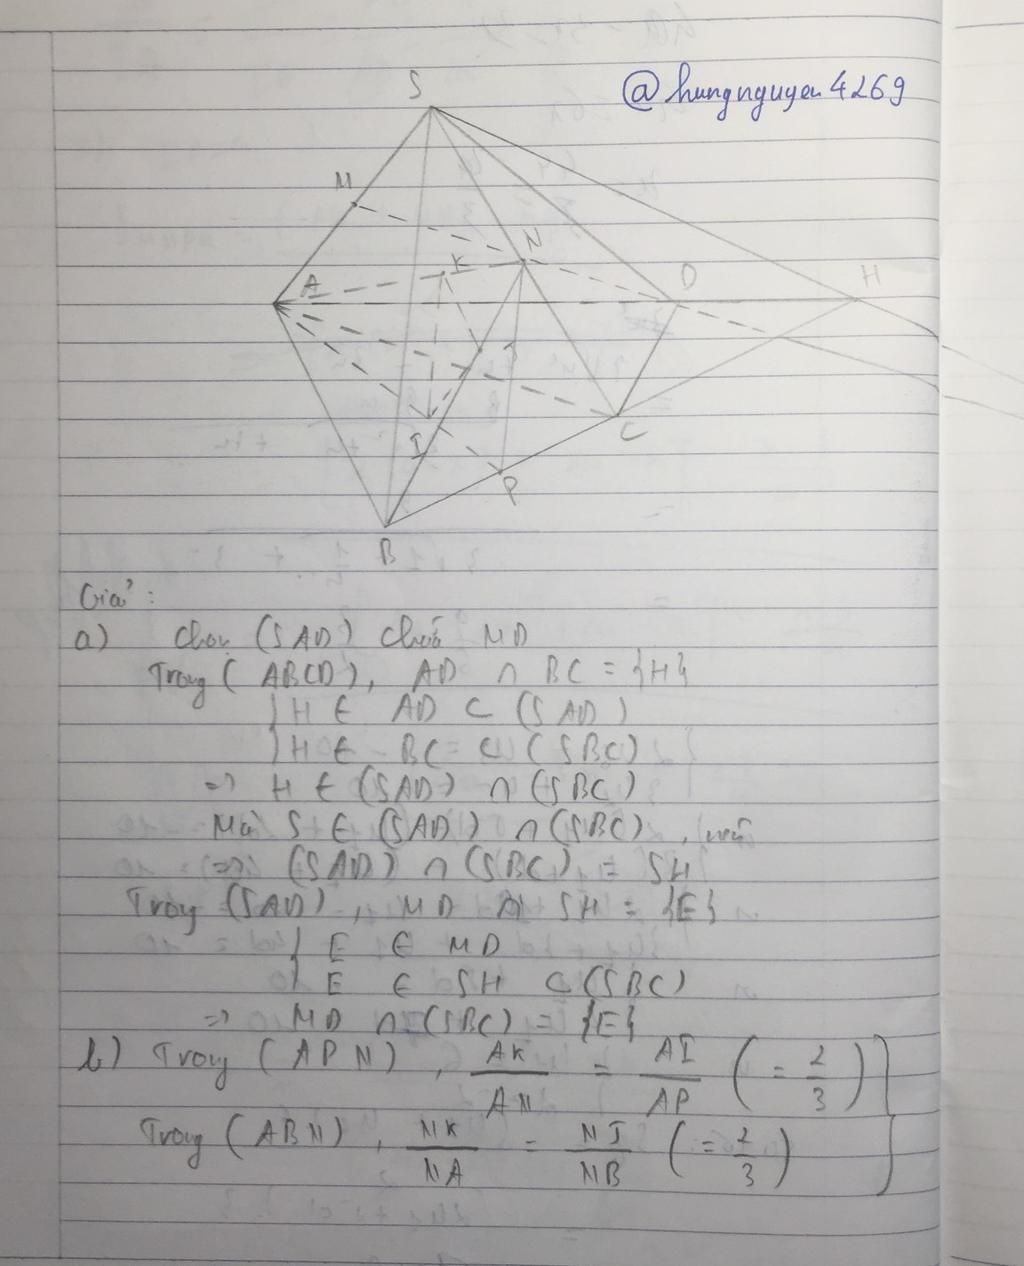 @hungnguyen4269
S
M
N
K
A
D
H
J
I
C
P
B
Giải:
a) Chọn (SAD) chứa MD
Trong (ABCD), AD ∩ BC = {H}
H ∈ AD ⊂ (SAD)
H ∈ BC ⊂ (SBC)
=> H ∈ (SAD) ∩ (SBC)
Mà S ∈ (SAD) ∩ (SBC)
=> (SAD) ∩ (SBC) = SH
Trong (SAD), MD ∩ SH = {E}
E ∈ MD
E ∈ SH ⊂ (SBC)
=> MD ∩ (SBC) = {E}
b) Trong (APN), AK/AN = AI/AP (= 2/3)
Trong (ABN), NK/NA = NJ/NB (= 2/3)